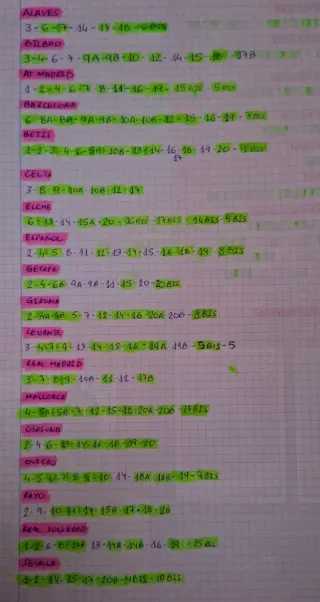 ALAVES
3 - 6 - 7 - 14 - 17 - 18 - 6BIS
BILBAO
3 - 4 - 6 - 7 - 9A - 9B - 10 - 12 - 14 - 15 - 17B
AT MADRID
1 - 2 - 4 - 6 - 7 - 8 - 11 - 16 - 19 - 15BIS - 5BIS
BARCELONA
6 - 8A - 8B - 9A - 9B - 10A - 10B - 12 - 15 - 16 - 19 - 7BIS
BETIS
1 - 2 - 3 - 4 - 6 - 10B - 13 - 14 - 16 - 18 - 19 - 20
17
CELTA
3 - 8 - 9 - 10A - 10B - 12 - 17
ELCHE
6 - 13 - 14 - 15A - 20 - 17BIS - 14BIS - 4BIS
ESPAÑOL
2 - 4 - 5 - 8 - 11 - 12 - 13 - 14 - 15 - 16 - 18 - 19
GETAFE
2 - 4 - 6B - 9A - 9B - 11 - 15 - 20 - 20BIS
GIRONA
5 - 7 - 12 - 14 - 16 - 20A - 20B
LEVANTE
3 - 4 - 7 - 9 - 13 - 14 - 15 - 16 - 19A - 19B - 5BIS - 5
REAL MADRID
3 - 7 - 8 - 9 - 10B - 11 - 12 - 17B
MALLORCA
4 - 5B - 7 - 12 - 15 - 18 - 20A - 20B - 17BIS
OSASUNA
2 - 4 - 6 - 13 - 14 - 18 - 19 - 20
OVIEDO
4 - 5 - 10 - 14 - 18A - 18B - 19 - 7BIS
RAYO
2 - 9 - 10 - 11 - 14 - 15A - 17 - 18 - 20
REAL SOCIEDAD
1 - 2 - 6 - 8 - 10A - 13 - 14A - 14B - 16 - 19
SEVILLA
1 - 2 - 14 - 15 - 17 - 20A - 4BIS - 10BIS